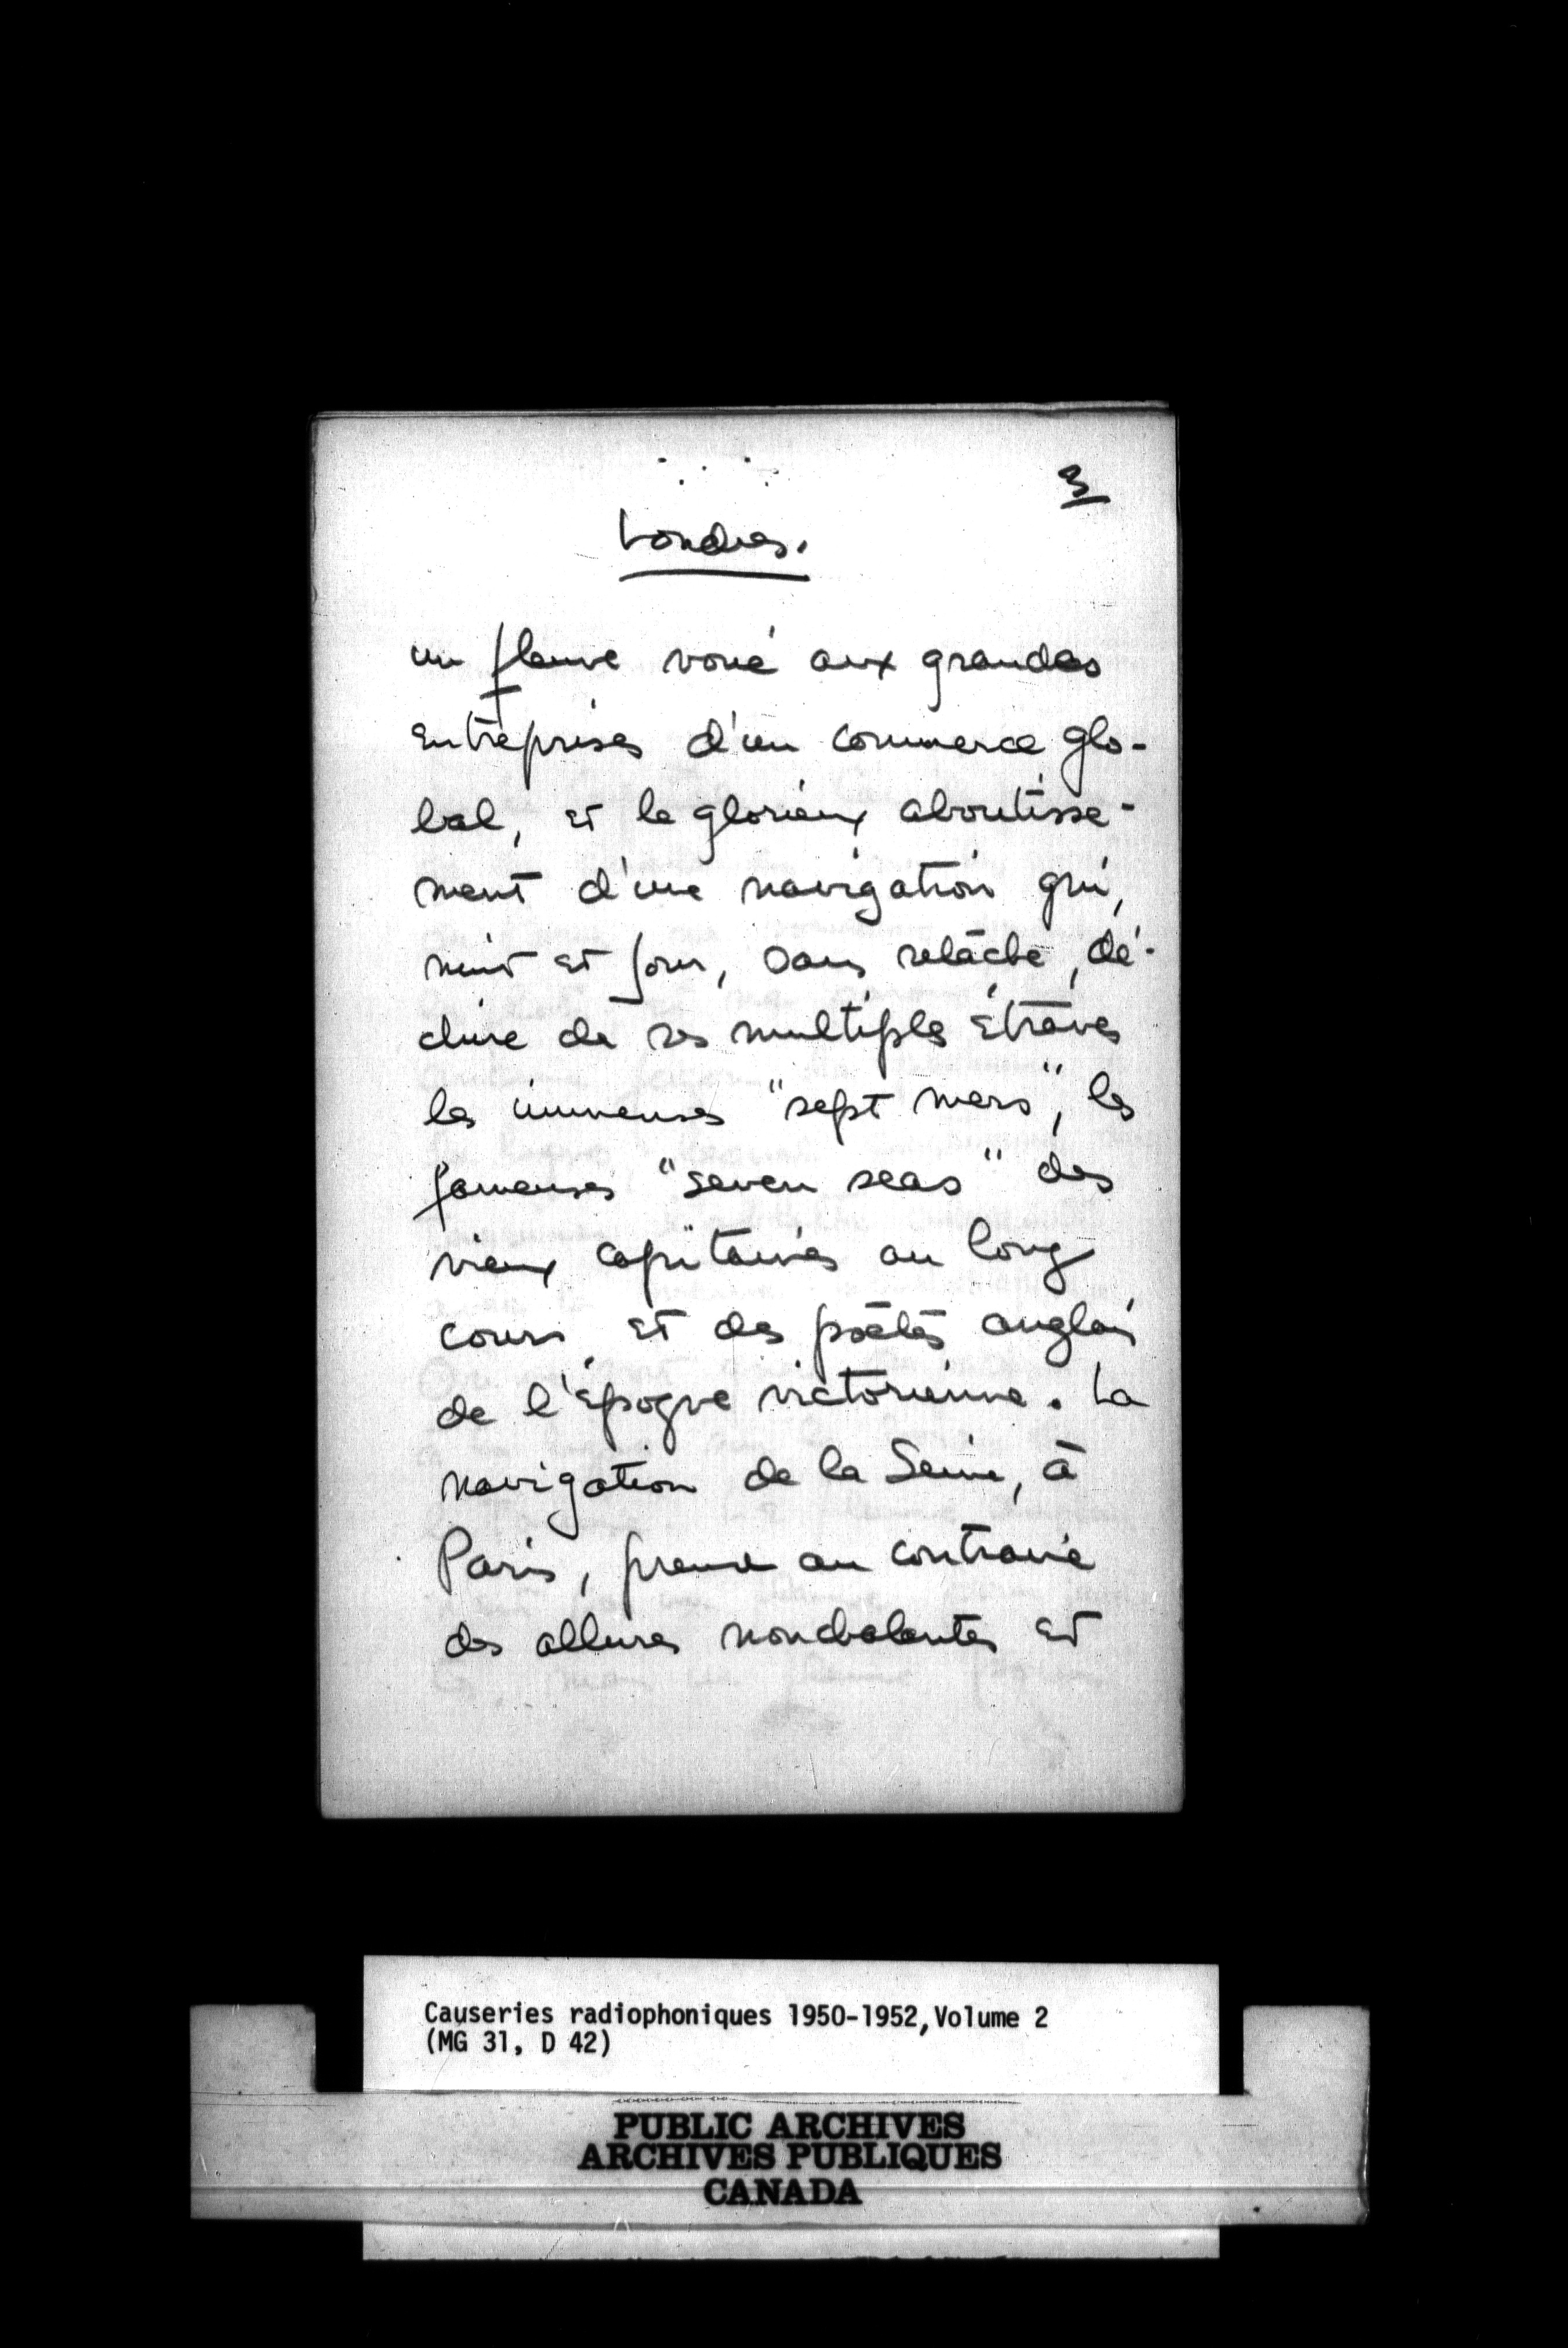 3
Londres.
un fleuve voué aux grandes
entreprises d'un commerce glo-
bal, et le glorieux aboutisse-
ment d'une navigation qui,
nuit et jour, sans relâche, dé-
chire de ses multiples étraves
les immenses "sept mers", les
fameuses "seven seas" des
vieux capitaines au long
cours et des poètes anglais
de l'époque victorienne. La
navigation de la Seine, à
Paris, prend au contraire
des allures nonchalantes et
Causeries radiophoniques 1950-1952, Volume 2
(MG 31, D 42)
PUBLIC ARCHIVES
ARCHIVES PUBLIQUES
CANADA